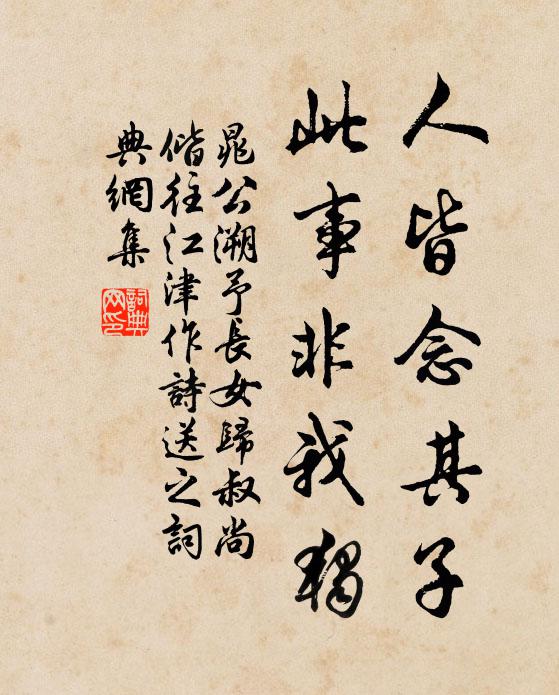 人皆念其子
此事非我獨
晁公溯予長女歸叔尚
偕往江津作詩送之詞
典網集
詞典
网印